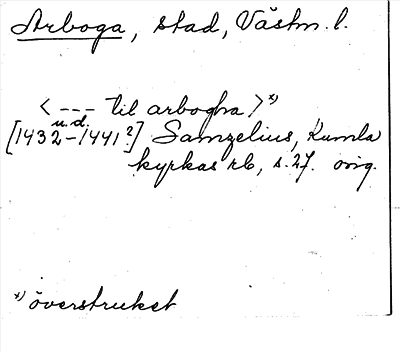 Arboga, stad, Västm. l.
< --- til arbogha >*)
u.d.
[1432-1441?] Samzelius, Kumla
kyrkas rb, s. 27. orig.
*) överstruket